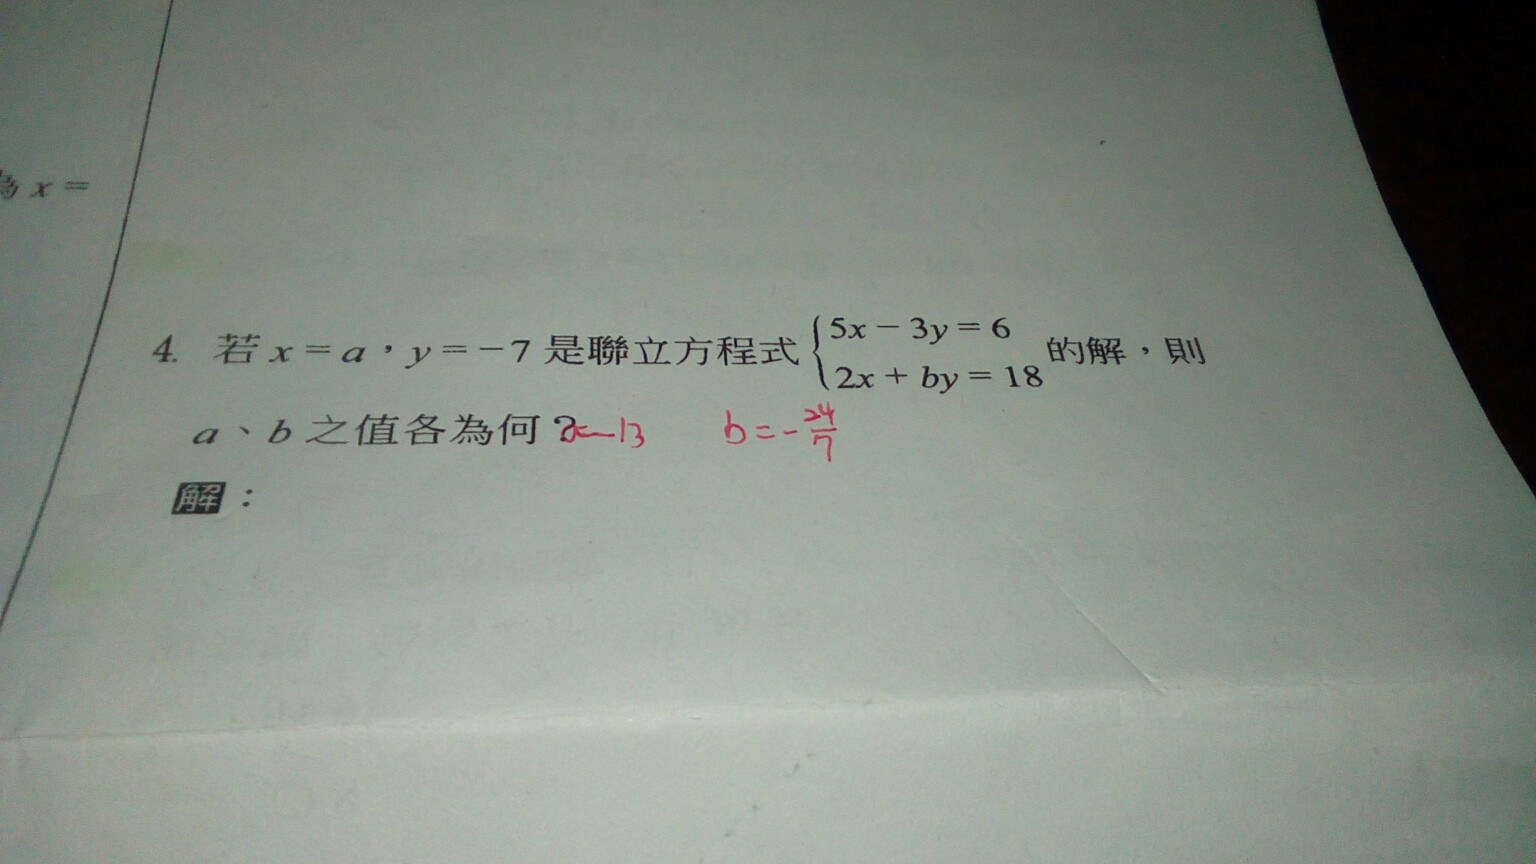 為 x =
4. 若 x = a，y = −7 是聯立方程式 { 5x − 3y = 6
2x + by = 18 的解，則
a、b 之值各為何？ 13 b = - 24/7
解：